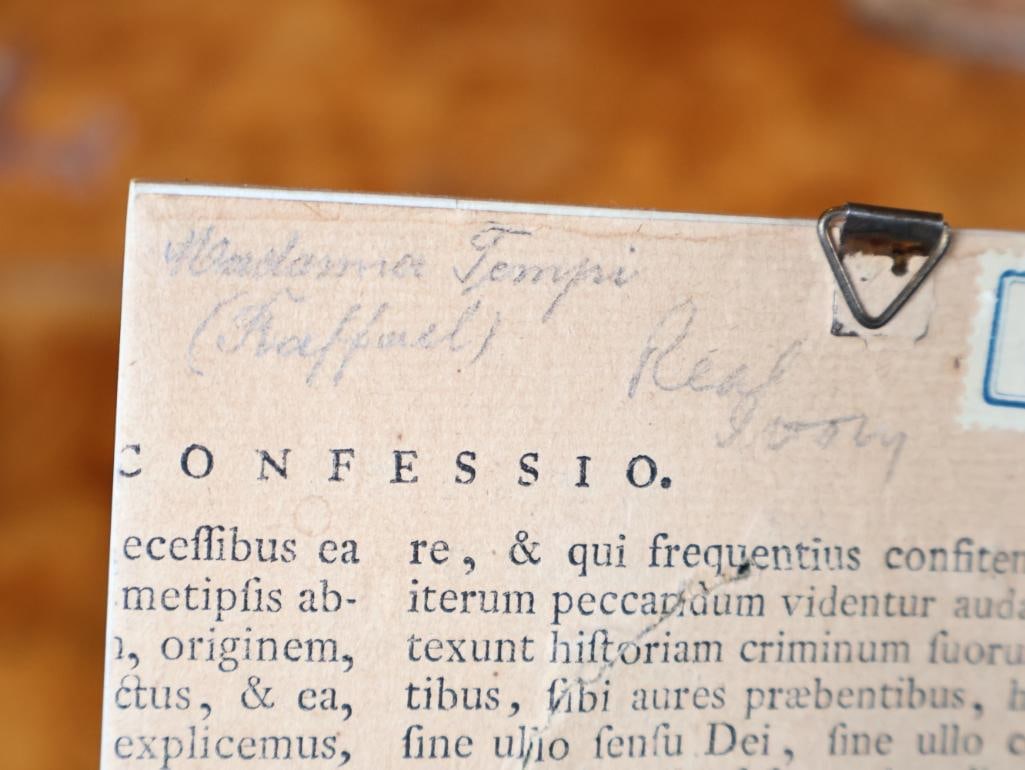 Madonna Tempi
(Raffael)
Real
Ivory
CONFESSIO.
eceſſibus ea
metipſis ab-
, originem,
ctus, & ea,
explicemus,
re, & qui frequentius confiten
iterum peccandum videntur auda
texunt hiſtoriam criminum ſuoru
tibus, ſibi aures præbentibus, h
ſine ullo ſenſu Dei, ſine ullo c